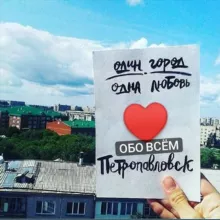 один город
одна любовь
ОБО ВСЁМ
Петропавловск